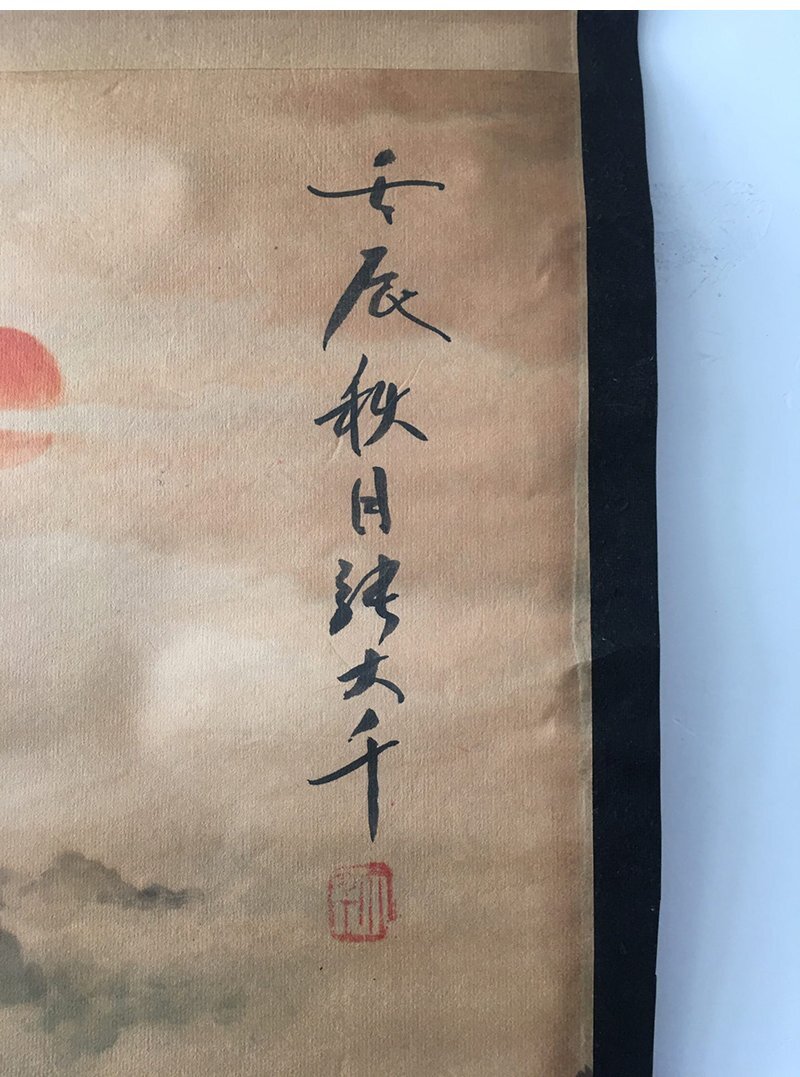 壬辰秋日张大千